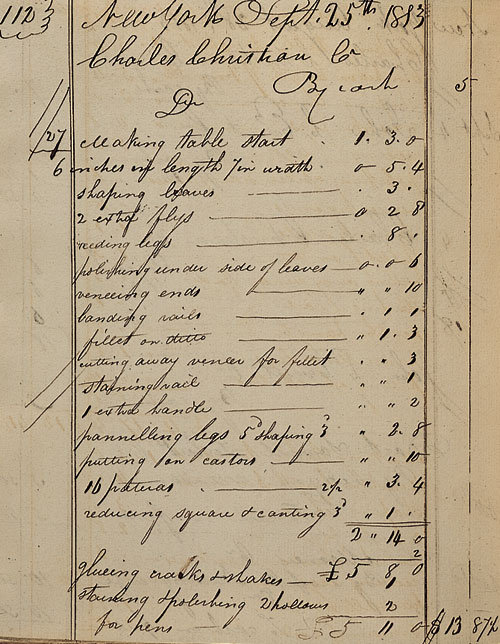 112
New York Sept. 25th. 1813
Charles Christian Cr
By cash 5
Dr
27 Making table start 1. 3. 0
6 inches in length 7 in width 0 5. 4
shaping leaves . 3.
2 extra flys 0 2 8
reeding legs . 8 .
polishing under side of leaves 0. 0 6
veneering ends " " 10
banding rails . 1 1
fillet on ditto " 1. 3
cutting away veneer for fillet . " 3
staining rail " " 1
1 extra handle " " 2
pannelling legs 5d shaping 3d " 2. 8
putting on castors " " 10
16 pateras 2½ " 3. 4
reducing square & canting 3d " 1 .
2 " 14 0
2
glueing cracks & shakes £ 5 8 0
1
staining & polishing 2 hollows 2
for pens £5 11 0 $ 13 87½